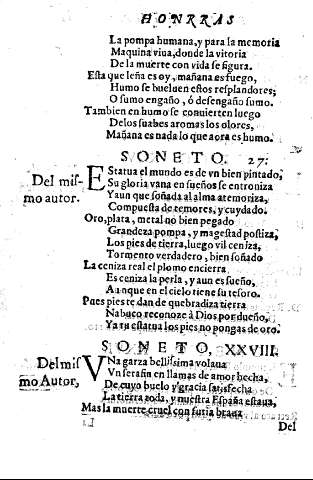 HONRRAS
La pompa humana, y para la memoria
Maquina viua, donde la vitoria
De la muerte con vida se figura.
Esta que leña es oy, mañana es fuego,
Humo se bueluen estos resplandores;
O sumo engaño, ó desengaño sumo.
Tambien en humo se conuierten luego
Delos suabes aromas los olores,
Mañana es nada lo que aora es humo.
SONETO. 27:
Del mis-
mo autor.
Estatua el mundo es de vn bien pintado,
Su gloria vana en sueños se entroniza
Y aun que soñada al alma atemoriza,
Compuesta de temores, y cuydado.
Oro, plata, metal no bien pegado
Grandeza pompa, y magestad postiza,
Los pies de tierra, luego vil ceniza,
Tormento verdadero, bien soñado
La ceniza real el plomo encierra
Es ceniza la perla, y aun es sueño,
Aunque en el cielo tiene su tesoro.
Pues pies te dan de quebradiza tierra
Nabuco reconoze à Dios por dueño,
Ya tu estatua los pies no pongas de oro.
SONETO, XXVIII.
Del mis
mo Autor,
Vna garza bellissima volaua
Vn serafin en llamas de amor hecha,
De cuyo buelo y gracia satisfecha
La tierra toda, y nuestra España estaua,
Mas la muerte cruel con furia braua
Del